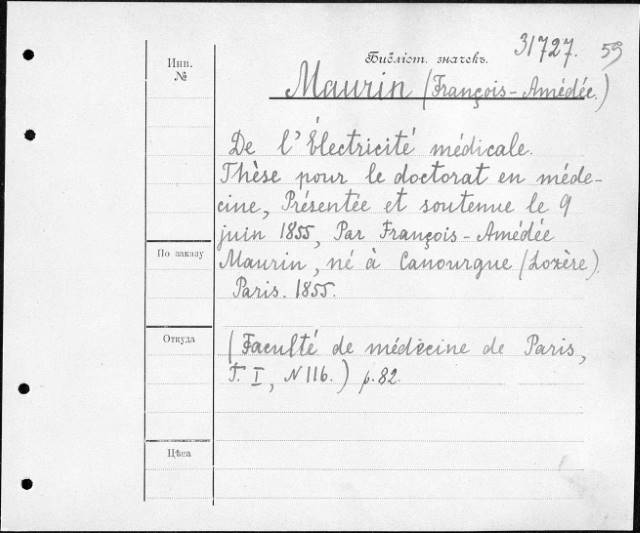 31727. 59
Инв.
№
Библіот. значекъ.
Maurin (François-Amédée.)
De l'Électricité médicale.
Thèse pour le doctorat en méde-
cine, Présentée et soutenue le 9
juin 1855, Par François-Amédée
По заказу
Maurin, né à Canourgue (Lozère).
Paris. 1855.
Откуда
(Faculté de médecine de Paris,
T. I, N 116.) p. 82.
Цѣна